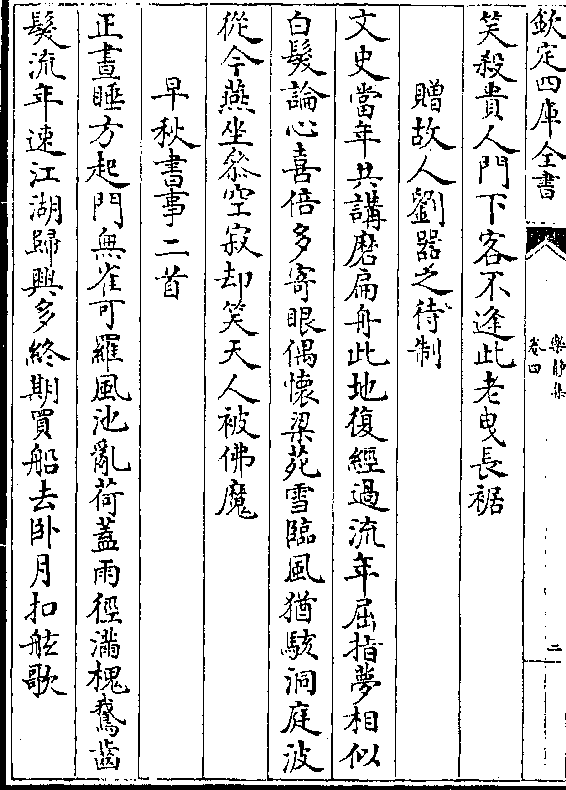 欽定四庫全書
樂靜集
卷四
二
笑殺貴人門下客不逢此老曳長裾
贈故人劉器之待制
文史當年共講磨扁舟此地復經過流年屈指夢相似
白髮論心喜倍多寄眼偶懷梁苑雪臨風猶駭洞庭波
從今燕坐叅空寂却笑天人被佛魔
早秋書事二首
正晝睡方起門無雀可羅風池亂荷蓋雨徑滿槐鵞齒
髮流年速江湖歸興多終期買船去卧月扣舷歌